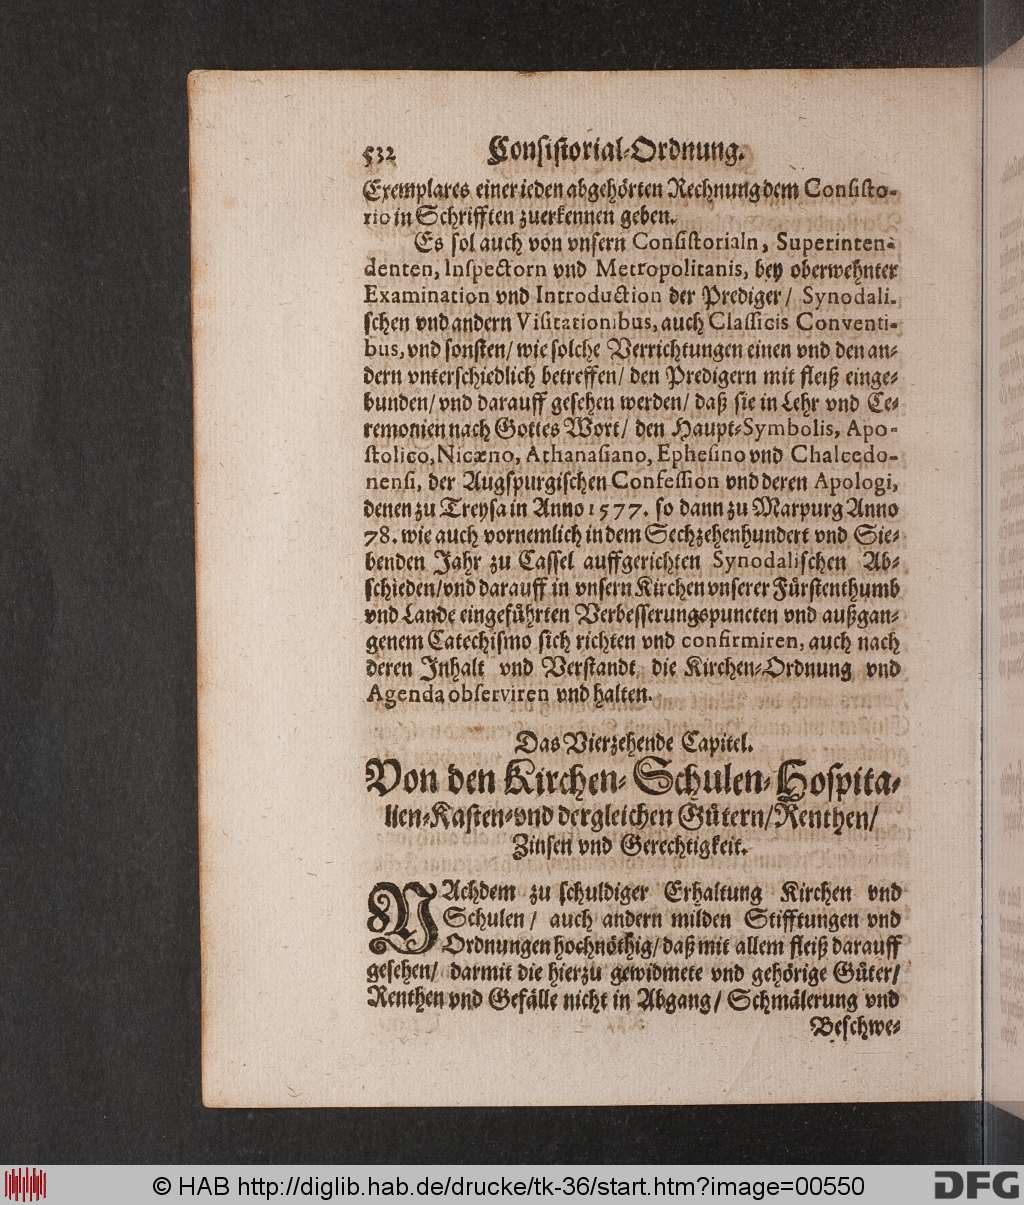 532 Consistorial-Ordnung.
Exemplares einer ieden abgehörten Rechnung dem Consisto-
rio in Schrifften zuerkennen geben.
Es sol auch von vnsern Consistorialn, Superinten-
denten, Inspectorn vnd Metropolitanis, bey oberwehnter
Examination vnd Introduction der Prediger/ Synodali-
schen vnd andern Visitationibus, auch Classicis Conventi-
bus, vnd sonsten/ wie solche Verrichtungen einen vnd den an-
dern vnterschiedlich betreffen/ den Predigern mit fleiß einge-
bunden/ vnd darauff gesehen werden/ daß sie in Lehr vnd Ce-
remonien nach Gottes Wort/ den Haupt-Symbolis, Apo-
stolico, Nicæno, Athanasiano, Ephesino vnd Chalcedo-
nensi, der Augspurgischen Confession vnd deren Apologi,
denen zu Treysa in Anno 1577. so dann zu Marpurg Anno
78. wie auch vornemlich in dem Sechzehenhundert vnd Sie-
benden Jahr zu Cassel auffgerichten Synodalischen Ab-
schieden/ vnd darauff in vnsern Kirchen vnserer Fürstenthumb
vnd Lande eingeführten Verbesserungspuncten vnd außgan-
genem Catechismo sich richten vnd confirmiren, auch nach
deren Inhalt vnd Verstandt die Kirchen-Ordnung vnd
Agenda observiren vnd halten.
Das Vierzehende Capitel.
Von den Kirchen- Schulen- Hospita-
lien-Kasten-vnd dergleichen Gütern/ Renthen/
Zinsen vnd Gerechtigkeit.
NAchdem zu schuldiger Erhaltung Kirchen vnd
Schulen/ auch andern milden Stifftungen vnd
Ordnungen hochnöthig/ daß mit allem fleiß darauff
gesehen/ darmit die hierzu gewidmete vnd gehörige Güter/
Renthen vnd Gefälle nicht in Abgang/ Schmälerung vnd
Beschwe-
© HAB http://diglib.hab.de/drucke/tk-36/start.htm?image=00550
DFG